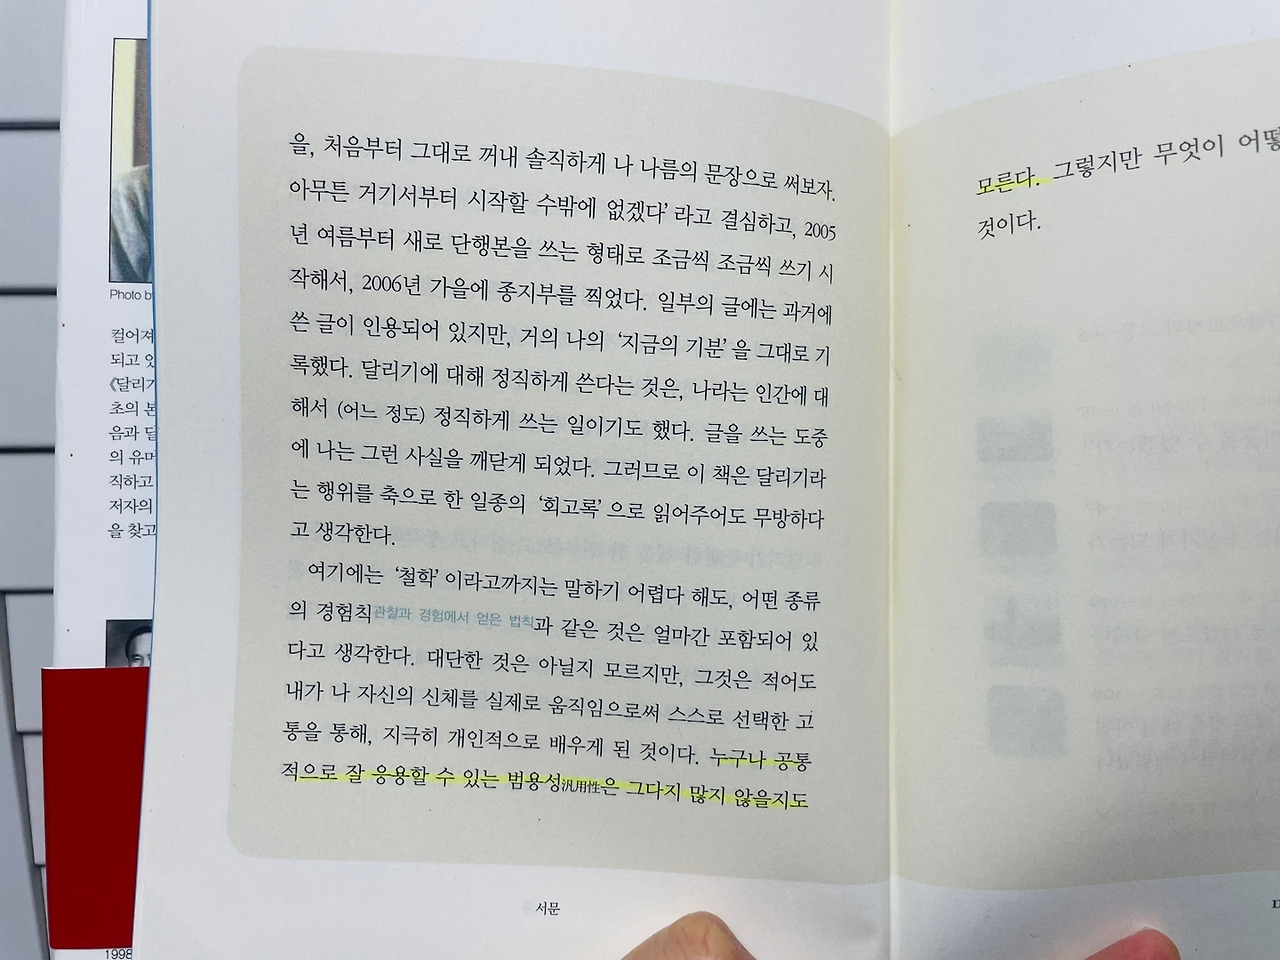 을, 처음부터 그대로 꺼내 솔직하게 나 나름의 문장으로 써보자.
아무튼 거기서부터 시작할 수밖에 없겠다’라고 결심하고, 2005
년 여름부터 새로 단행본을 쓰는 형태로 조금씩 조금씩 쓰기 시
작해서, 2006년 가을에 종지부를 찍었다. 일부의 글에는 과거에
쓴 글이 인용되어 있지만, 거의 나의 ‘지금의 기분’을 그대로 기
록했다. 달리기에 대해 정직하게 쓴다는 것은, 나라는 인간에 대
해서 (어느 정도) 정직하게 쓰는 일이기도 했다. 글을 쓰는 도중
에 나는 그런 사실을 깨닫게 되었다. 그러므로 이 책은 달리기라
는 행위를 축으로 한 일종의 ‘회고록’으로 읽어주어도 무방하다
고 생각한다.
여기에는 ‘철학’이라고까지는 말하기 어렵다 해도, 어떤 종류
의 경험칙관찰과 경험에서 얻은 법칙과 같은 것은 얼마간 포함되어 있
다고 생각한다. 대단한 것은 아닐지 모르지만, 그것은 적어도
내가 나 자신의 신체를 실제로 움직임으로써 스스로 선택한 고
통을 통해, 지극히 개인적으로 배우게 된 것이다. 누구나 공통
적으로 잘 응용할 수 있는 범용성汎用性은 그다지 많지 않을지도
서문
모른다. 그렇지만 무엇이 어떻
것이다.
Photo by
컬어져
되고 있
《달리기
초의 본
음과 달
의 유머
직하고
저자의
을 찾고
1998